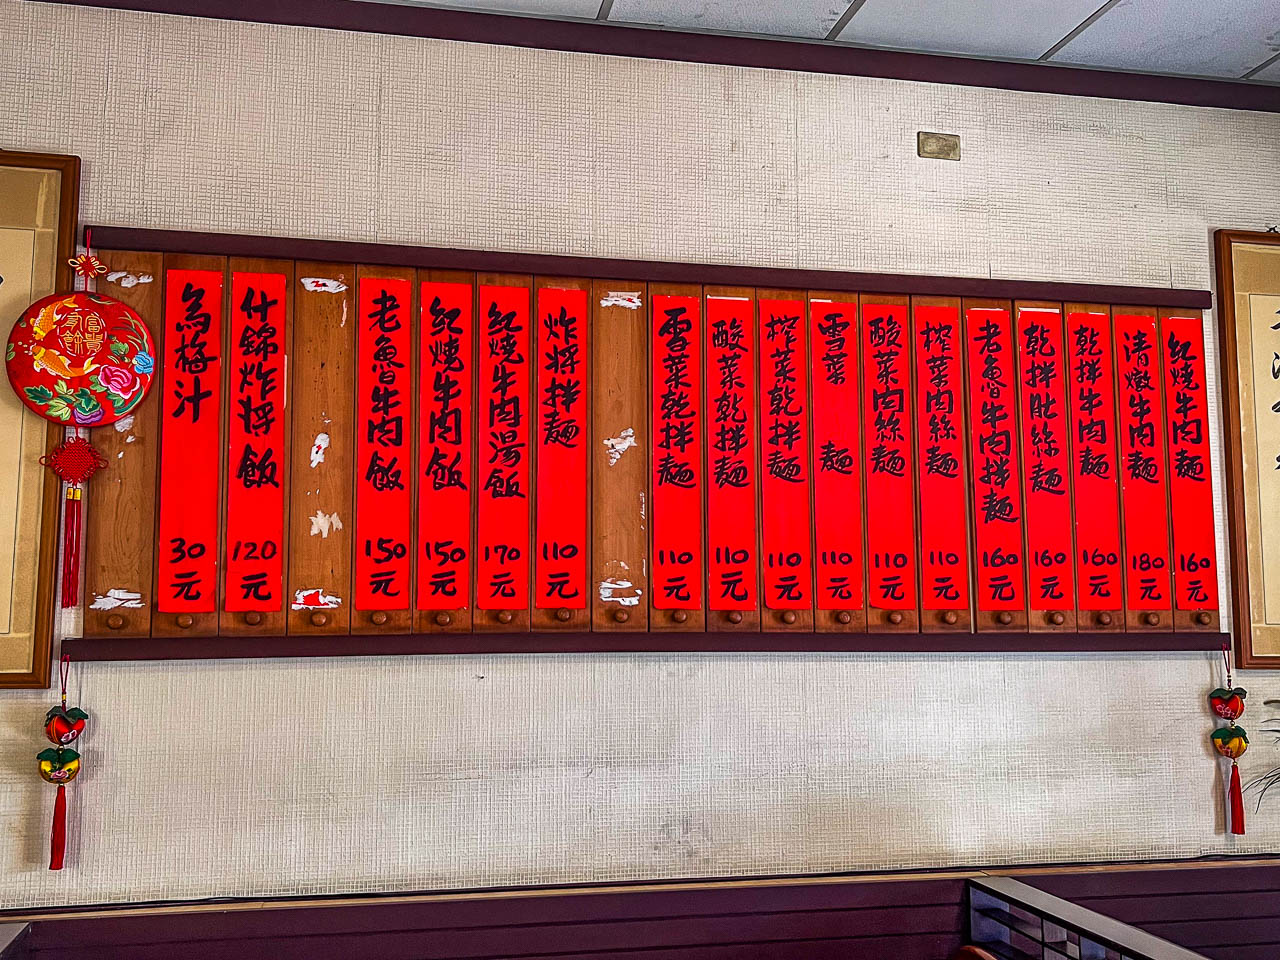 紅燒牛肉麵 160元
清燉牛肉麵 180元
乾拌牛肉麵 160元
乾拌肚絲麵 160元
老魯牛肉拌麵 160元
榨菜肉絲麵 110元
酸菜肉絲麵 110元
雪菜 麵 110元
榨菜乾拌麵 110元
酸菜乾拌麵 110元
雪菜乾拌麵 110元
炸將拌麵 110元
紅燒牛肉湯飯 170元
紅燒牛肉飯 150元
老魯牛肉飯 150元
什錦炸將飯 120元
烏梅汁 30元